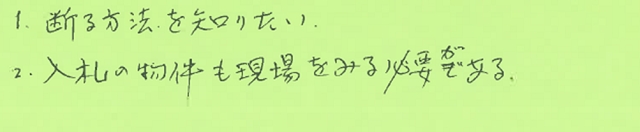 1. 断る方法を知りたい.
2. 入札の物件も現場をみる必要がある.